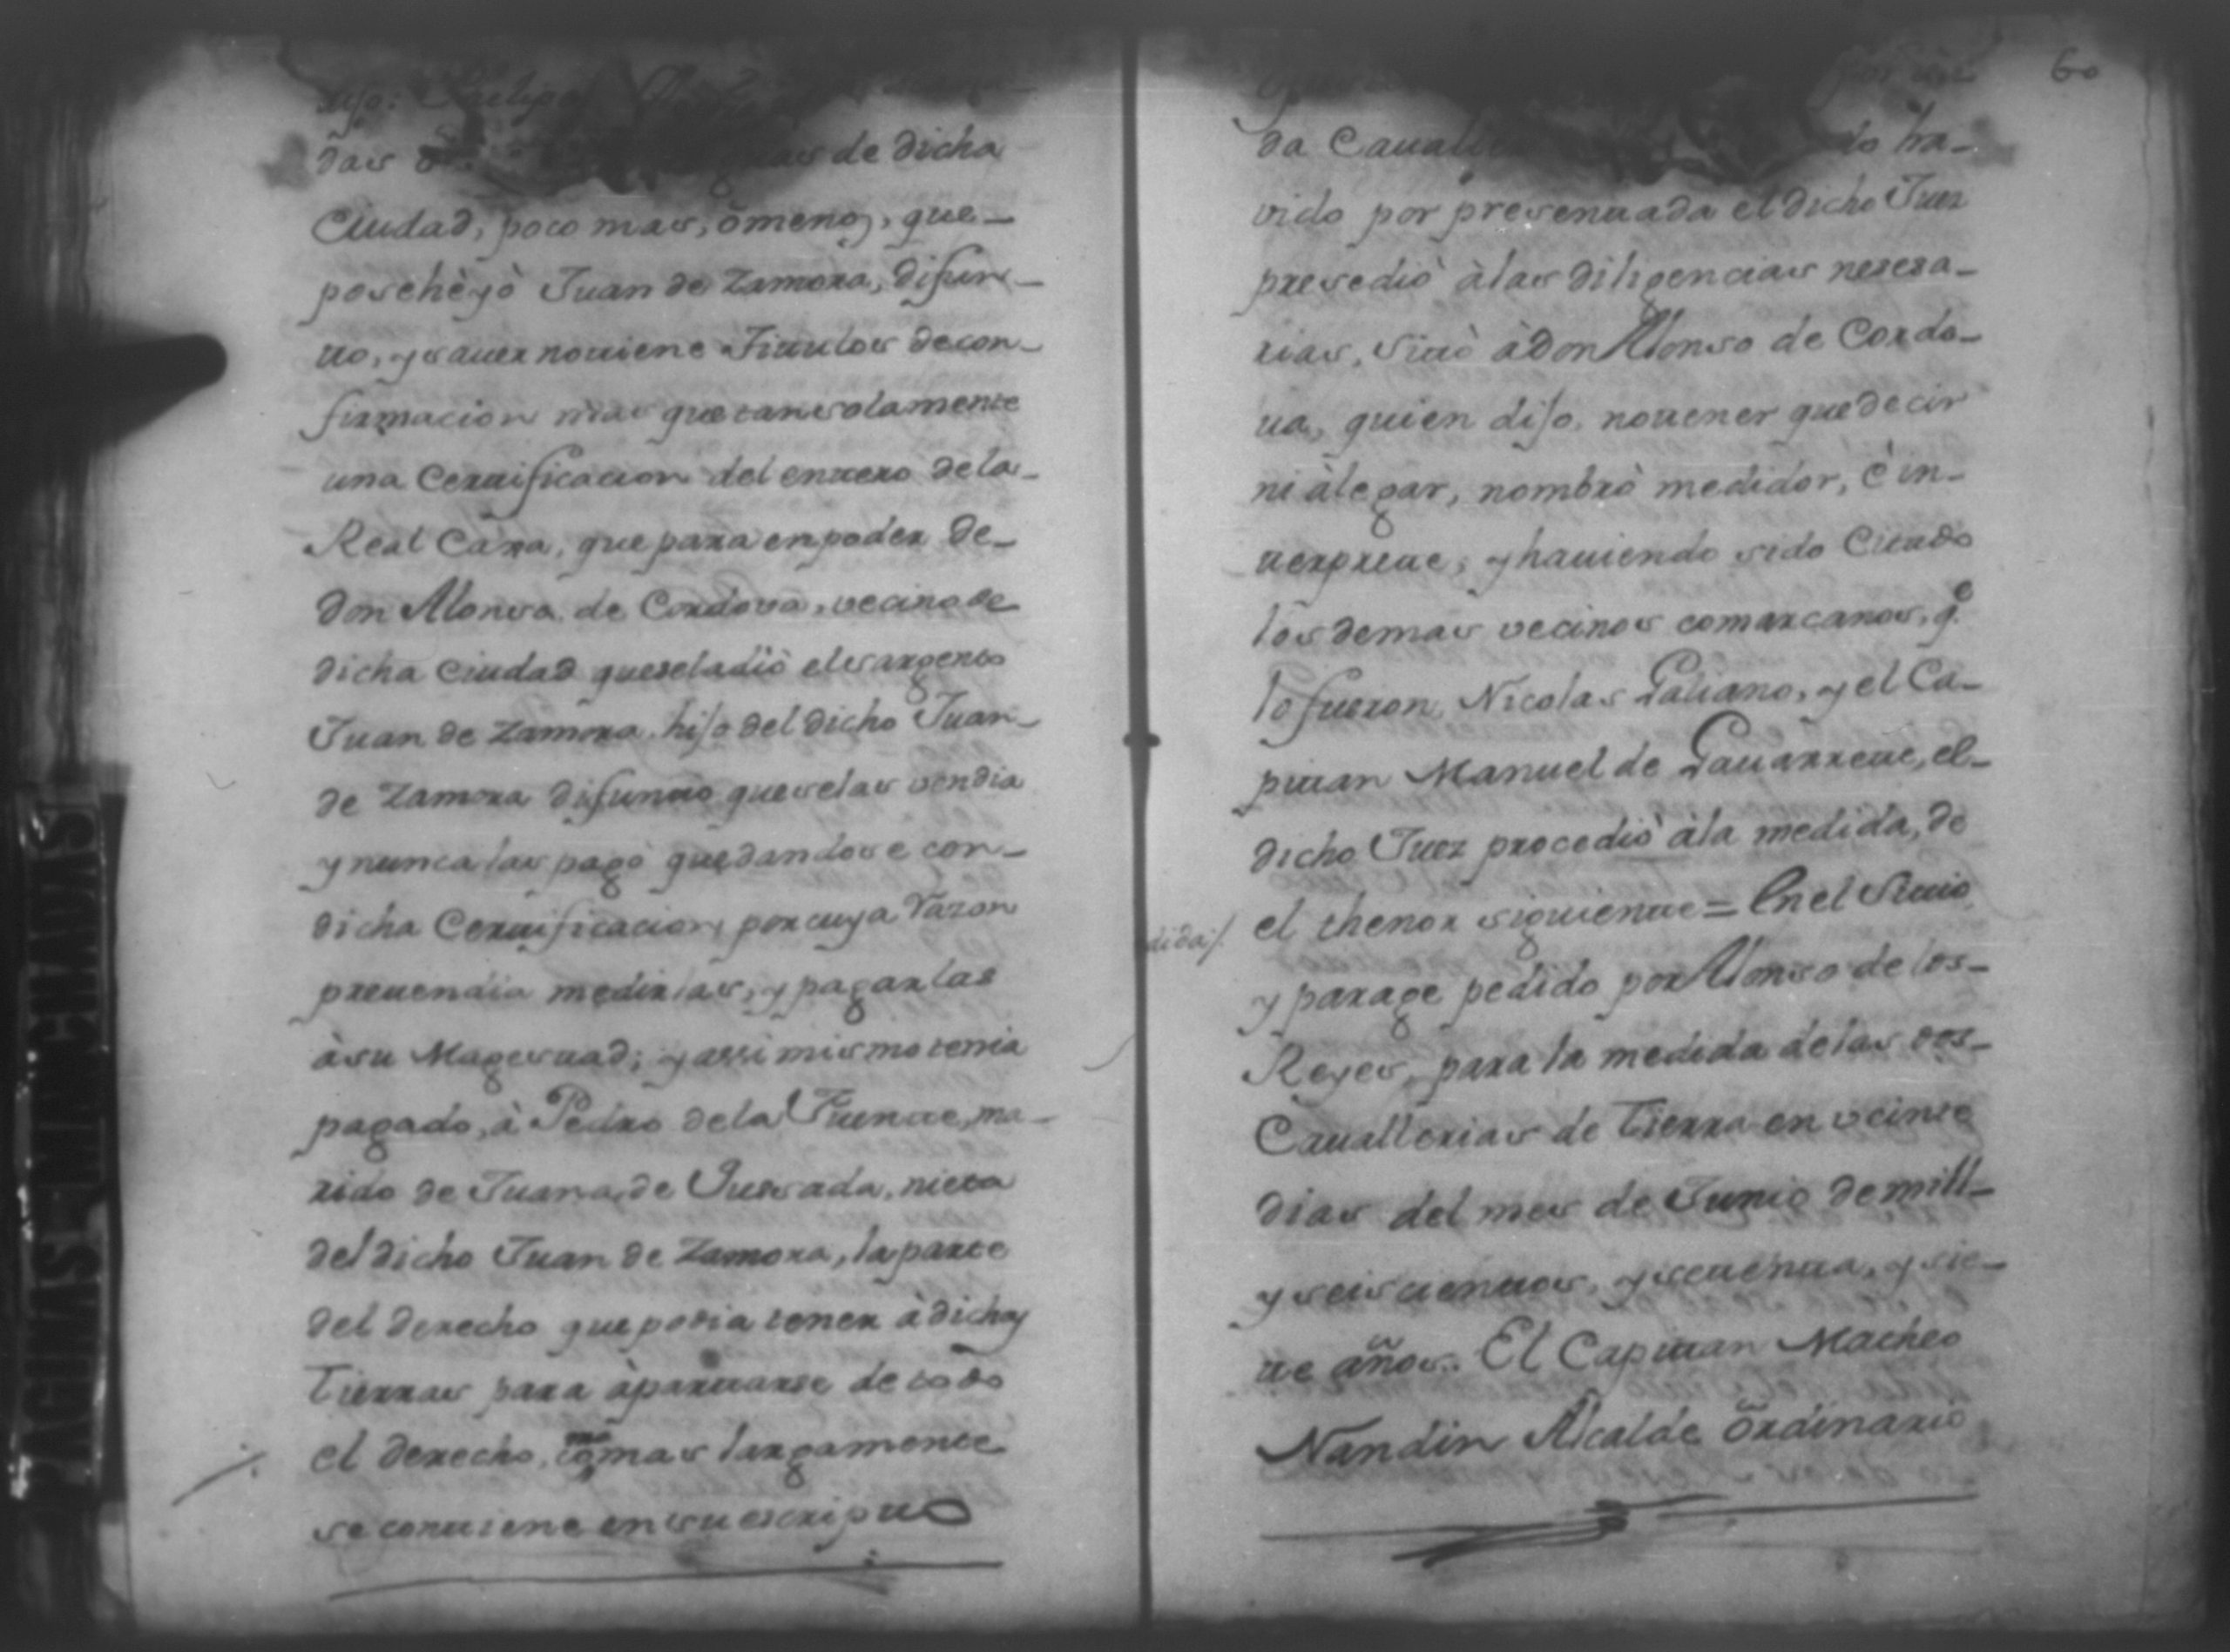 das de dicha
Ciudad, poco mas, ômenos, que-
poschèyò Juan de Zamora, difun-
to, y saver notiene Titulos decon-
firmacion mas quetansolamente
una Certificacion del entero dela-
Real Caxa, que para enpoder de-
Don Alonso de Cordova, vecino de
dicha Ciudad queseladiò elsargento
Juan de Zamora hijo del dicho Juan-
de Zamora difunto queselas vendia
y nunca las pagò quedandose con-
dicha Certificacion, por cuya Razon
pretendia medirlas, y pagarlas
àsu Magestad; y assimismo tenia
pagado, à Pedro dela Fuente, ma-
rido de Juana de Quesada, nieta
del dicho Juan de Zamora, la parte
del derecho que podia tener à dichas
Tierras para àpartarse de todo
el derecho, como mas largamente
se contiene ensu escripto
60
da Cavalle do ha-
vido por presentada el dicho Juez
presedió àlas diligencias nesesa-
rias, Sitò àDon Alonso de Cordo-
va, quien dijo, notener quedecir
ni àlegar, nombrò medidor, è in-
terprete; y haviendo sido Citado
los demas vecinos comarcanos, q.e
lo fueron, Nicolas Galiano, y el Ca-
pitan Manuel de Gavarrete, el-
dicho Juez procedió àla medida, de
el thenor siguiente = En el Sitio
didas/.
y parage pedido por Alonso de los-
Reyes, para la medida delas dos-
Cavallerias de Tierra en veinte
dias del mes de Junio demill-
y seiscientos, y setenta, y sie-
te años. El Capitan Matheo
Nandin Alcalde õrdinario
PAGINAS EN MICHADAS